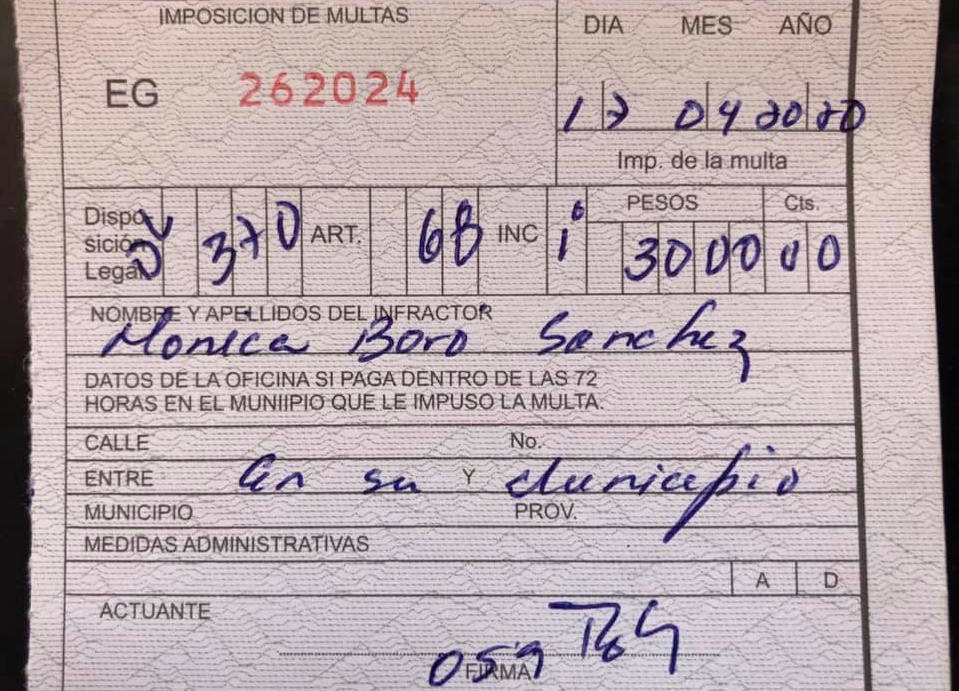 IMPOSICION DE MULTAS
DIA MES AÑO
EG 262024
17 04 2020
Imp. de la multa
Dispo
sición
Legal
DL 370 ART. 68 INC i
PESOS Cts.
3000 00
NOMBRE Y APELLIDOS DEL INFRACTOR
Monica Boro Sanchez
DATOS DE LA OFICINA SI PAGA DENTRO DE LAS 72
HORAS EN EL MUNIIPIO QUE LE IMPUSO LA MULTA.
CALLE No.
ENTRE Y
en su Municipio
MUNICIPIO PROV.
MEDIDAS ADMINISTRATIVAS
A D
ACTUANTE
FIRMA